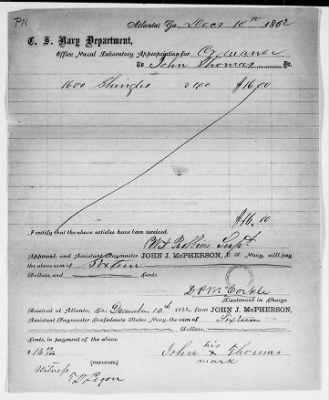 PN
Atlanta Ga Decr 10th 1862
C. S. Navy Department,
Office Naval Laboratory Appropriation for Ordnance
To John Thomas Dr.
1600 Shingles $16.00
$16.00
I certify that the above articles have been received.
Robbins Supt.
Approved, and Assistant Paymaster JOHN J. McPHERSON, C. S. Navy, will pay
the above sum of Sixteen
Dollars, and Cents
D P McCorkle
Lieutenant in Charge
Received at Atlanta, Ga. December 10th 1862 from JOHN J. McPHERSON,
Assistant Paymaster Confederate States Navy, the sum of Sixteen
Dollars and
Cents, in payment of the above
$16
his
John x Thomas
mark
Witness